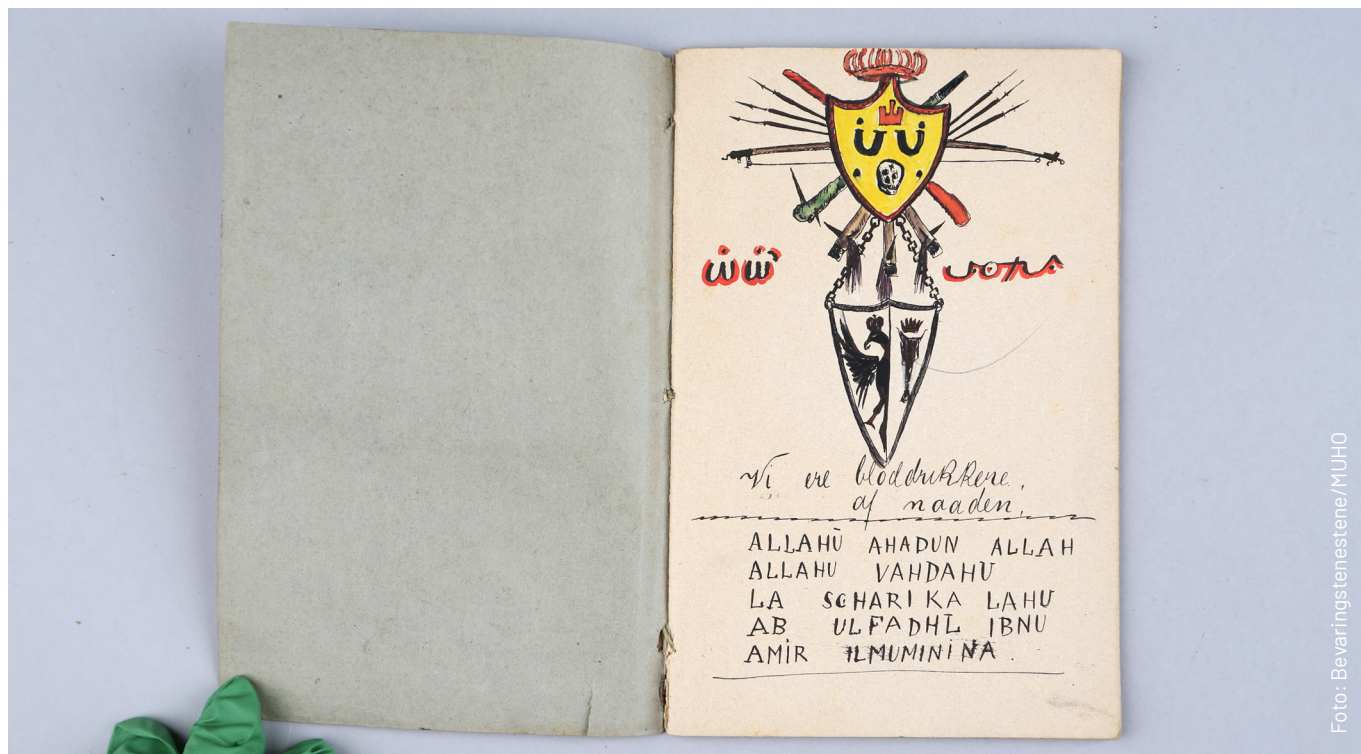 Vi ere bloddrikkere,
af naaden,
ALLAHÙ AHADUN ALLAH
ALLAHU VAHDAHU
LA SCHARIKA LAHU
AB ULFADHL IBNU
AMIR ILMUMININA.
Foto: Bevaringstenestene/MUHO